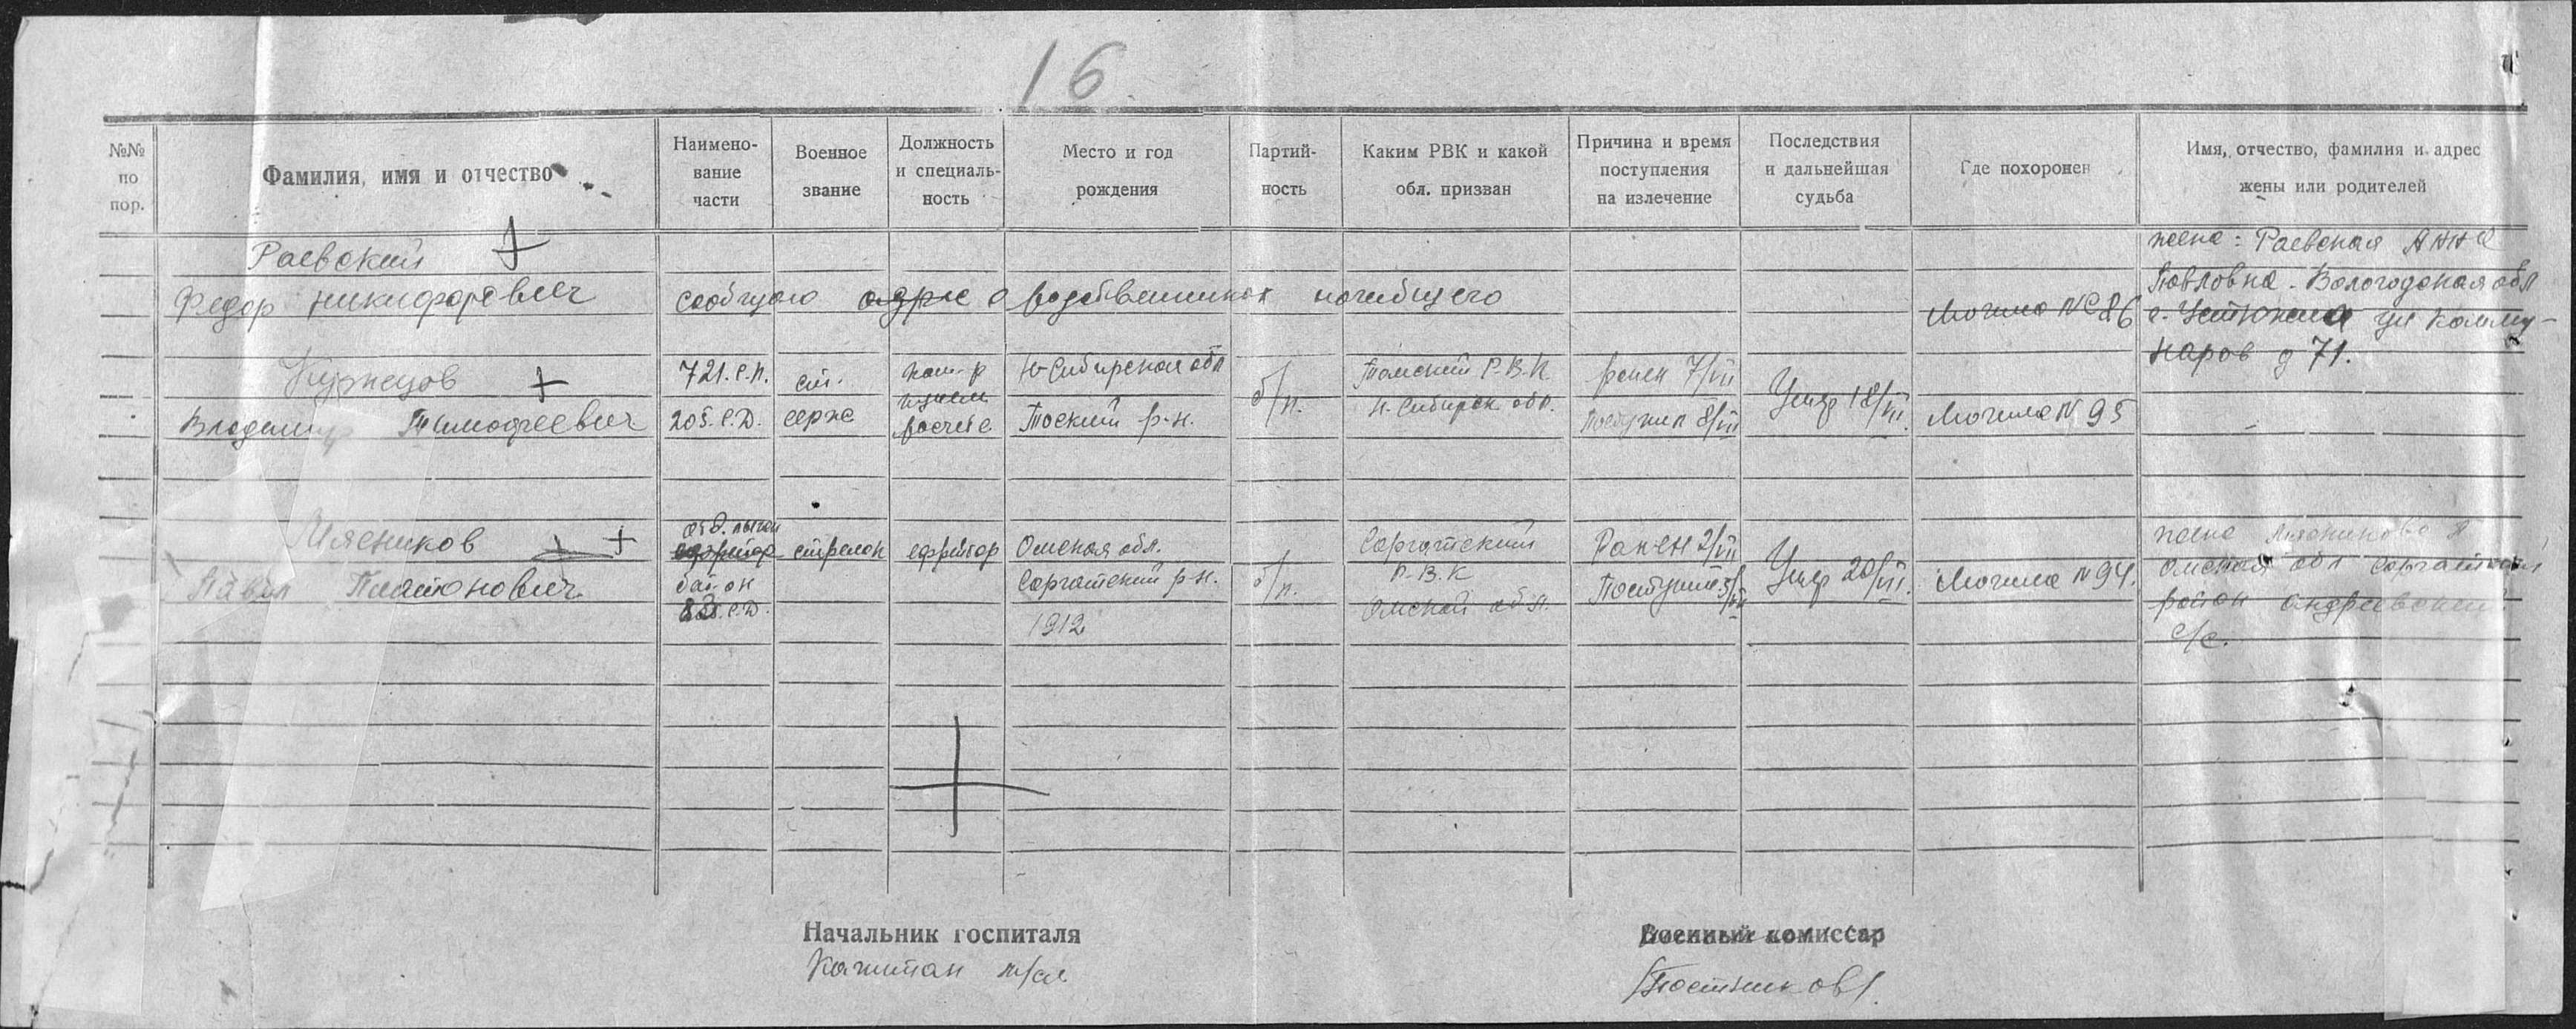 16
№№ по пор.
Фамилия, имя и отчество
Наименование части
Военное звание
Должность и специальность
Место и год рождения
Партийность
Каким РВК и какой обл. призван
Причина и время поступления на излечение
Последствия и дальнейшая судьба
Где похоронен
Имя, отчество, фамилия и адрес жены или родителей
Раевский
Федор Никифорович
сообщаю адрес о родственниках погибшего
Могила № 86
жена: Раевская Анна
Павловна. Вологодская обл
г. Устюжна ул Комму-
наров д 71.
Кузнецов
Владимир Тимофеевич
721. с.п.
205. с.д.
ст.
серж
ком-р
расчета
Н-Сибирская обл
Тоский р-н.
б/п.
Томский Р.В.К.
Н-Сибирск обл.
ранен 7/VII
Поступил 8/VII
Умер 18/VII.
Могила № 95
-
Мясников
Павел Платонович
отд. лыжн
ефрейтор
бат.он
с.д.
стрелок
ефрейтор
Омская обл.
Саргатский р-н.
1912
б/п.
Саргатский
Р.В.К
Омской обл.
Ранен 2/VII
Поступил 5/VII
Умер 20/VII.
Могила № 94.
жена Мясникова
Омская обл Саргатский
район Андреевский
с/с.
Начальник госпиталя
Капитан м/сл
Военный комиссар
/Постников/.